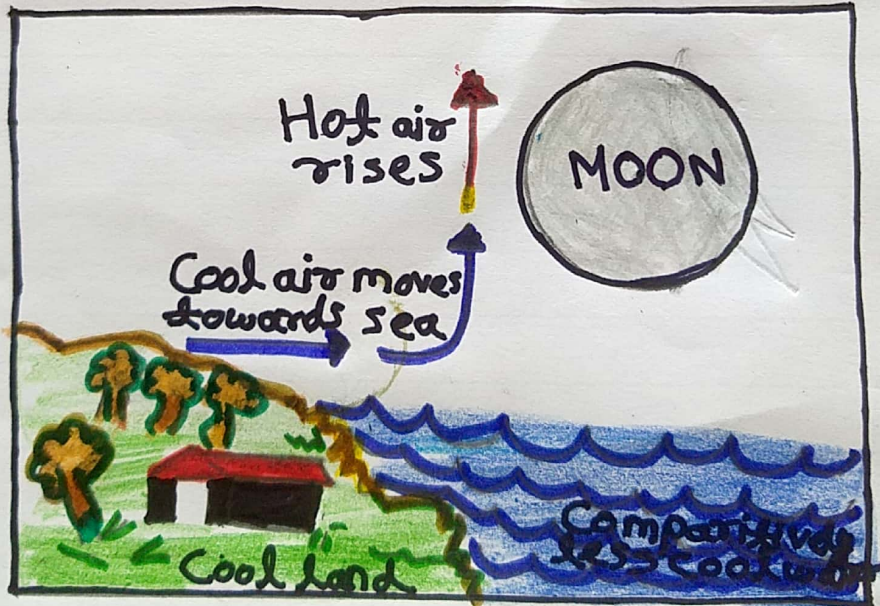 Hot air
rises
MOON
Cool air moves
towards sea
Cool land
Comparitively
less cool water